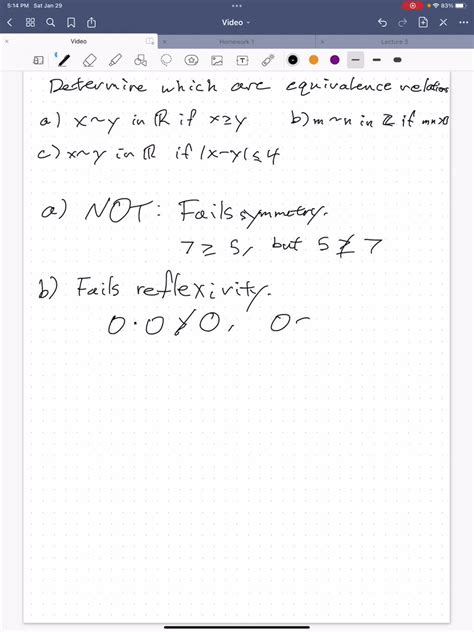 5:14 PM Sat Jan 29
83%
Video
Video
Homework 1
Lecture 3
Determine which are equivalence relations
a) x~y in ℝ if x≥y b) m~n in ℤ if mn>0
c) x~y in ℝ if |x-y|≤4
a) NOT: Fails symmetry.
7 ≥ 5, but 5 ≱ 7
b) Fails reflexivity.
0·0 ≯ 0, 0~